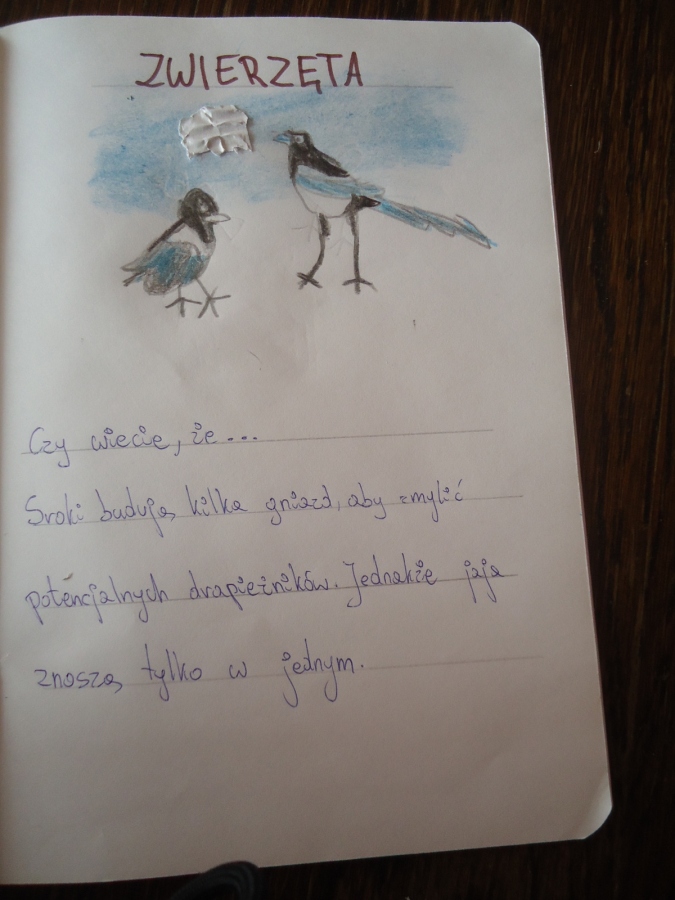 ZWIERZĘTA
Czy wiecie, że...
Sroki budują kilka gniazd, aby zmylić
potencjalnych drapieżników. Jednakże jaja
znoszą tylko w jednym.